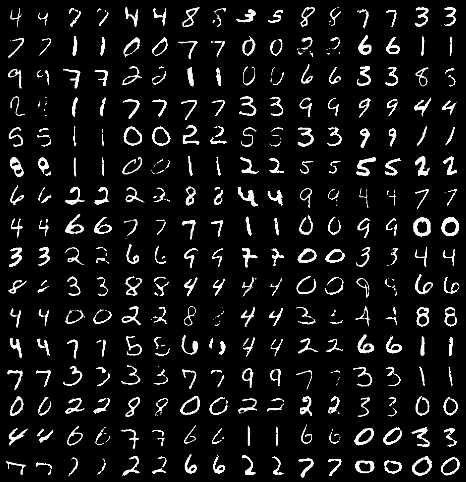 4 4 7 7 4 4 8 8 3 5 8 8 7 7 3 3
7 7 1 1 0 0 7 7 0 0 2 2 6 6 1 1
9 9 7 7 2 2 1 1 0 0 6 6 3 3 8 5
2 1 1 7 7 7 7 3 3 9 9 9 9 4 4
5 5 1 1 0 0 2 2 5 5 3 3 9 9 1 1
8 8 1 1 0 0 1 1 2 2 5 5 5 5 2 2
6 6 2 2 2 2 8 8 4 4 9 9 4 4 7 7
4 4 6 6 7 7 7 7 1 1 0 0 9 9 0 0
3 3 2 2 6 6 9 9 7 7 0 0 3 3 4 4
8 3 3 8 8 4 4 4 4 0 0 9 9 6 6
4 4 0 0 2 2 8 4 4 3 4 4 8 8
4 4 7 7 5 5 4 4 2 2 6 6 1 1
7 7 3 3 3 3 7 7 9 9 7 7 3 3 1 1
0 0 2 2 8 8 0 0 2 2 2 2 3 3 0 0
4 4 6 6 7 7 6 6 1 1 6 6 0 0 3 3
7 7 7 7 2 2 6 6 2 2 7 7 0 0 0 0